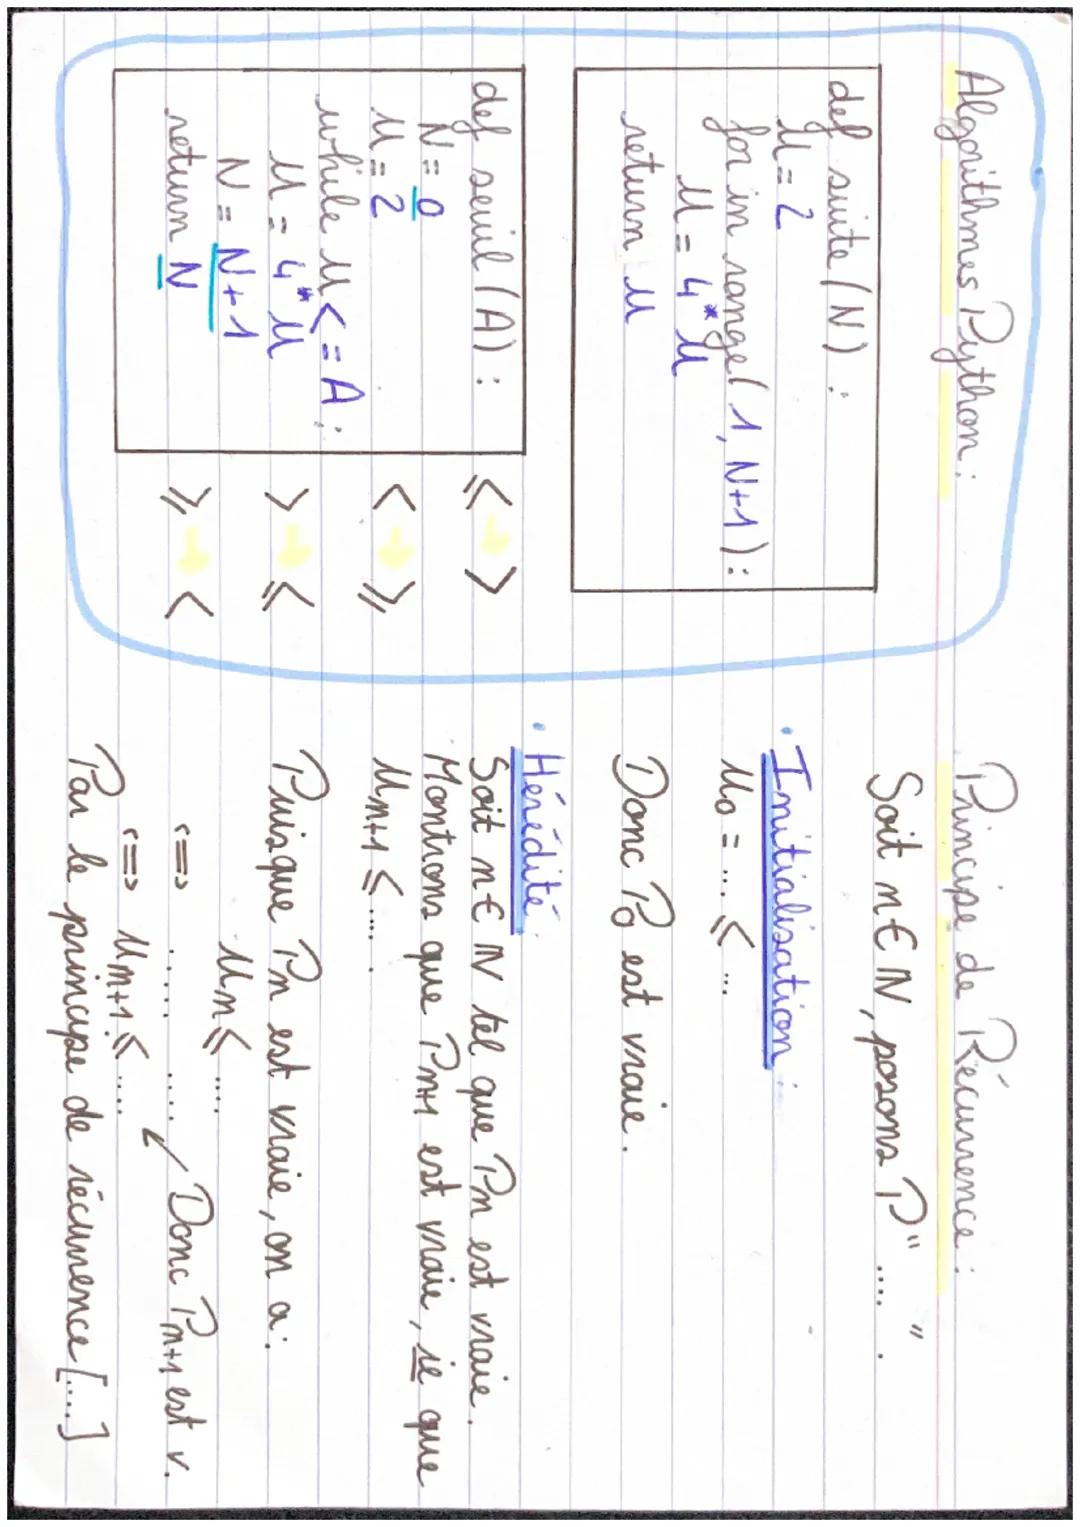 Algorithmes Python :
def suite (N) :
u = 2
for in range( 1, N+1) :
u = 4*u
return u
def seuil (A) :
N = 0
u = 2
while u <= A :
u = 4*u
N = N+1
return N
⩽ → >
< → ⩾
> → ⩽
⩾ → <
Principe de Récurrence :
Soit n ∈ ℕ, posons P " ..... " .
• Initialisation :
u0 = .... ⩽ ...
Donc P0 est vraie.
• Hérédité :
Soit n ∈ ℕ tel que Pn est vraie.
Montrons que Pn+1 est vraie, ie que
un+1 ⩽ .... .
Puisque Pn est vraie, on a :
un ⩽ ....
<=> ...... .....
<=> un+1 ⩽ .... ↙ Donc Pn+1 est v.
Par le principe de récurrence [....]